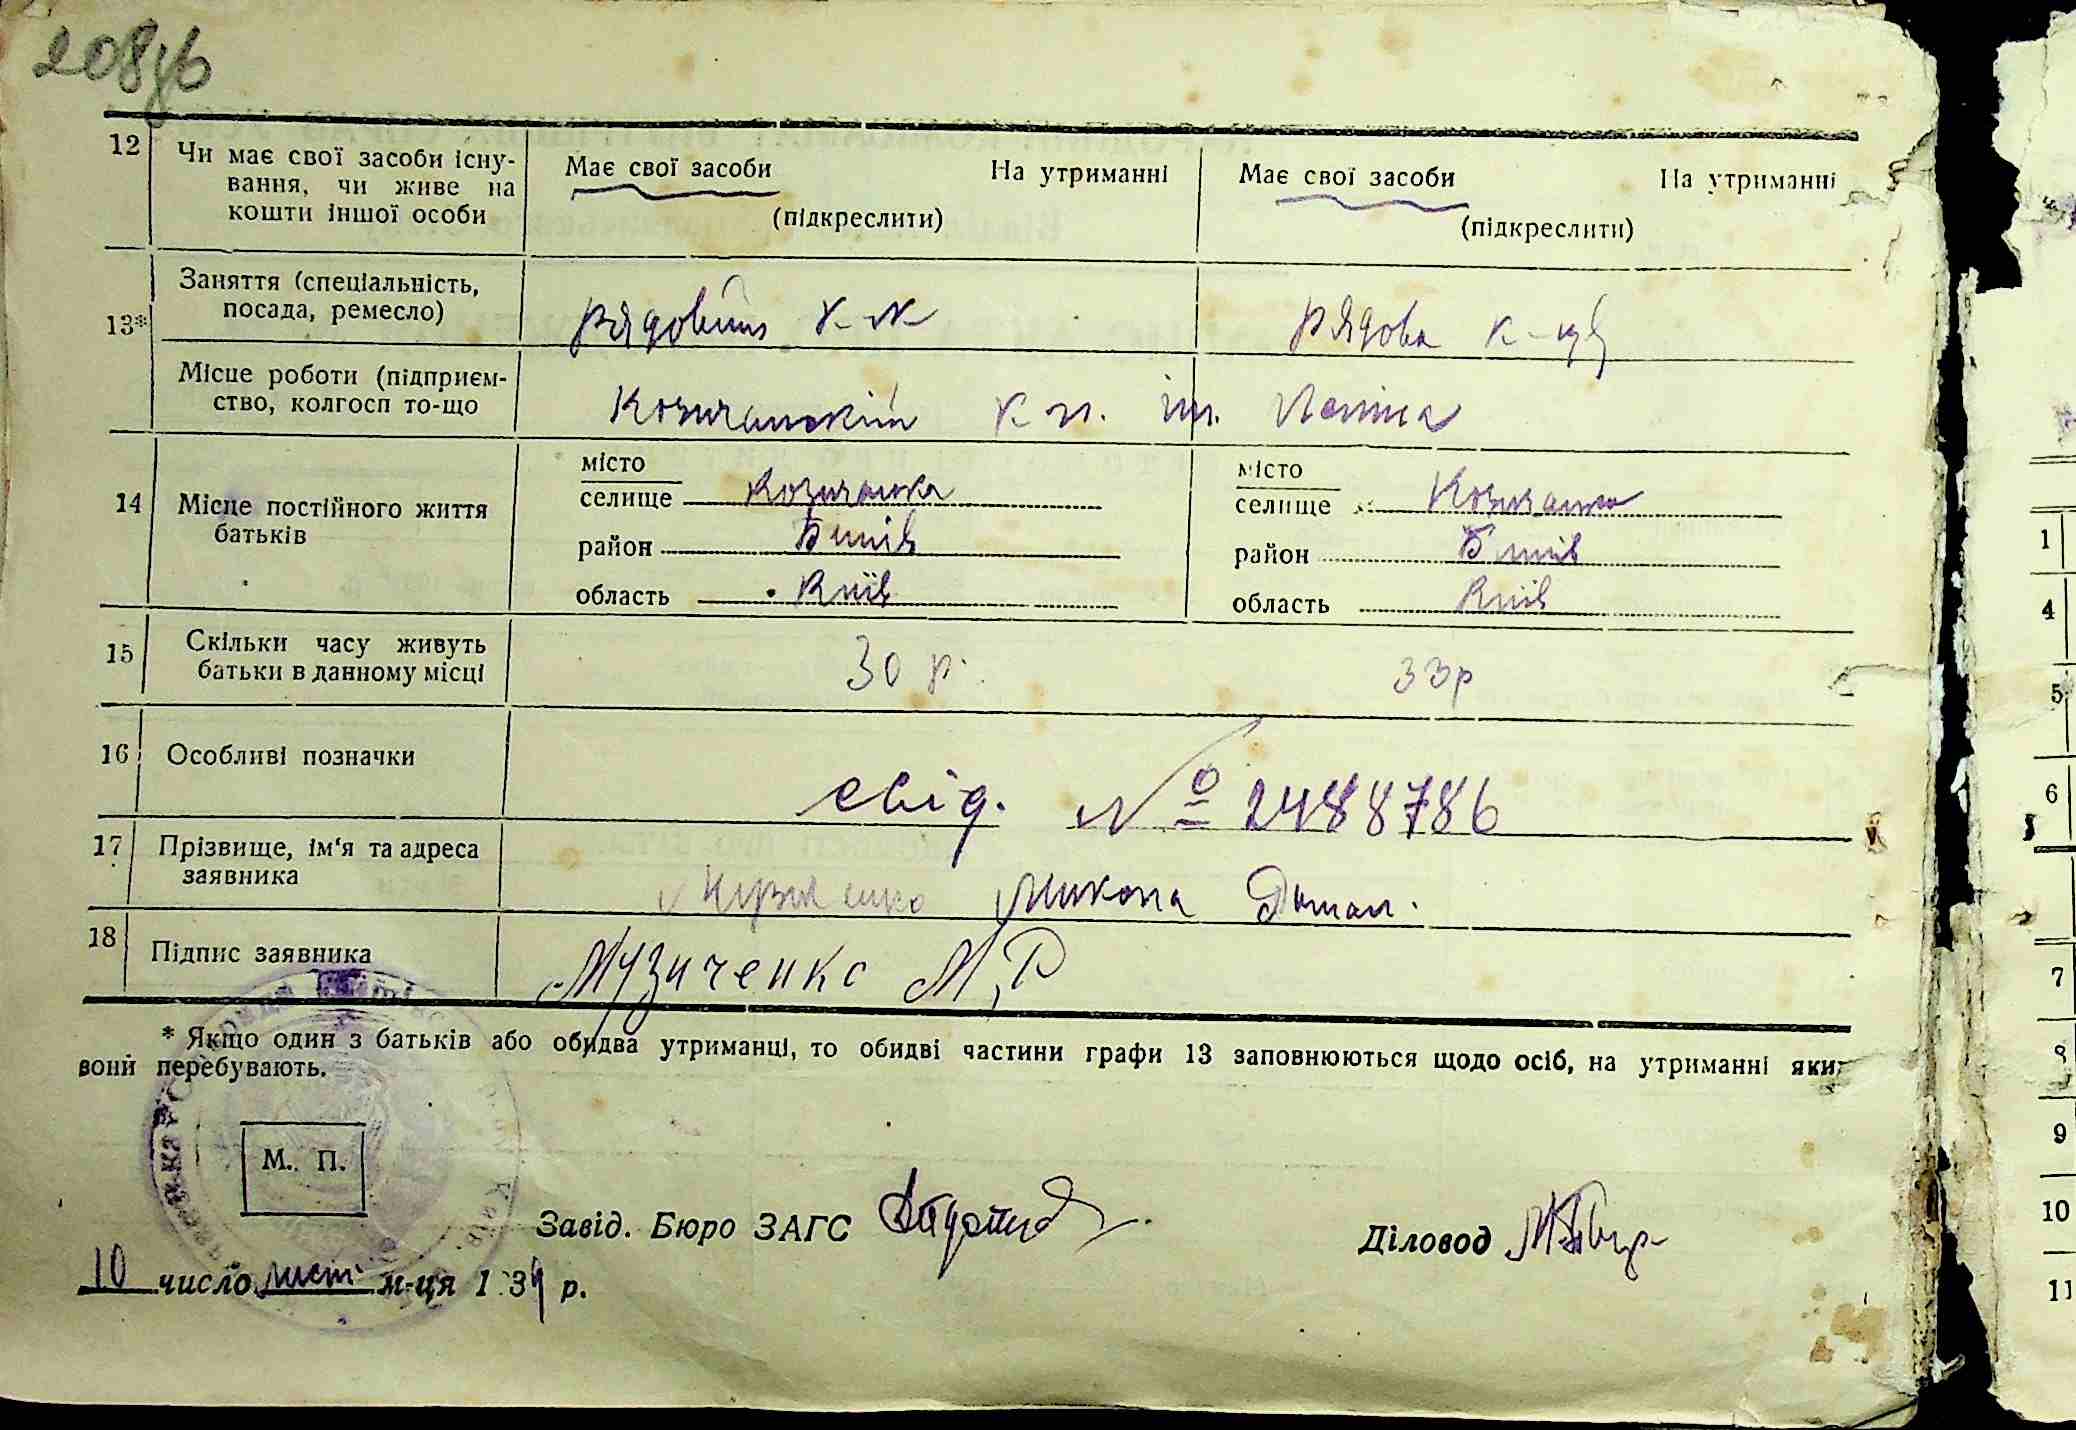 208зв
12 Чи має свої засоби існу-
вання, чи живе на
кошти іншої особи
Має свої засоби На утриманні
(підкреслити)
Має свої засоби На утриманні
(підкреслити)
13* Заняття (спеціальність,
посада, ремесло)
Рядовий к-к Рядова к-ця
Місце роботи (підприєм-
ство, колгосп то-що
Козичанський к г. ім. Леніна
14 Місце постійного життя
батьків
місто
селище Козичанка
район
область Київ
місто
селище Козичанка
район
область Київ
15 Скільки часу живуть
батьки в данному місці
30 р. 33р
16 Особливі позначки
свід. № 2488786
17 Прізвище, ім'я та адреса
заявника
Музиченко Микола
18 Підпис заявника
Музиченко М, Р
* Якщо один з батьків або обидва утриманці, то обидві частини графи 13 заповнюються щодо осіб, на утриманні яких
вони перебувають.
М. П.
Завід. Бюро ЗАГС
Діловод
10 число лист. м-ця 1939 р.
1
4
5
6
7
8
9
10
11